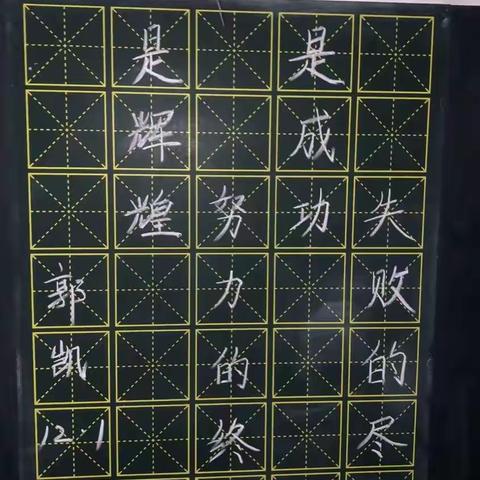 失败的尽
是成功
努力的终
是辉煌
郭凯
12.1